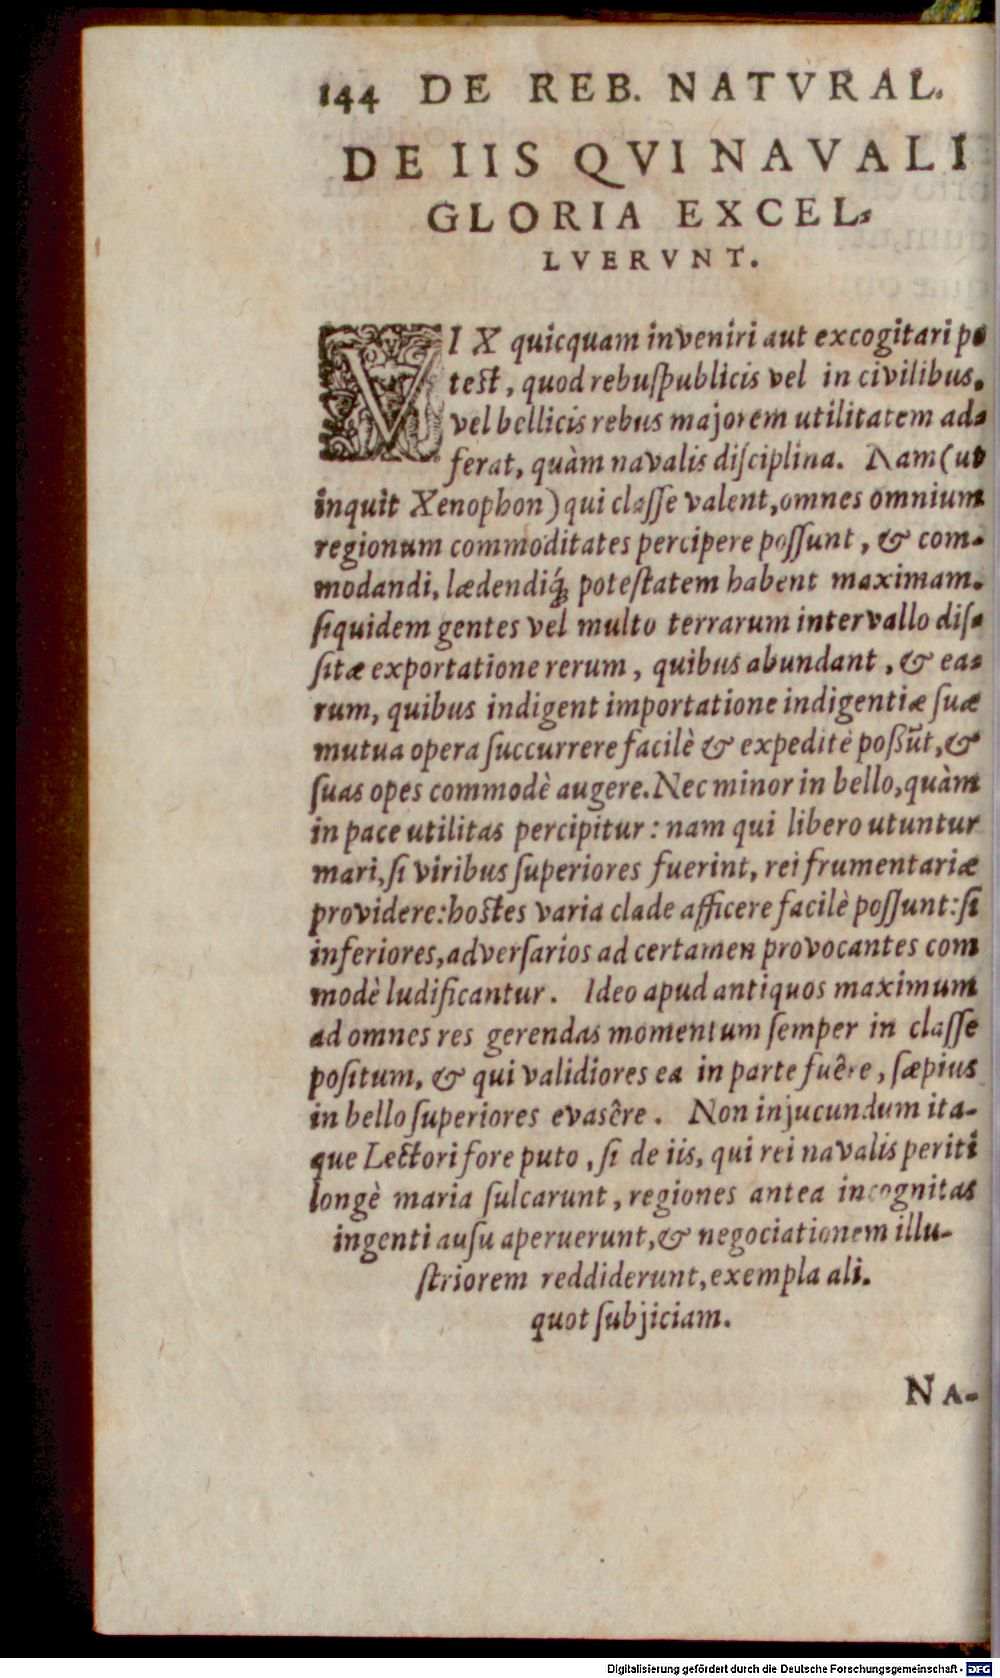 144 DE REB. NATVRAL.
DE IIS QVI NAVALI
GLORIA EXCEL-
LVERVNT.
VIX quicquam inveniri aut excogitari po
test, quod rebuſpublicis vel in civilibus,
vel bellicis rebus majorem utilitatem ad-
ferat, quàm navalis diſciplina. Nam (ut
inquit Xenophon) qui claſſe valent, omnes omnium
regionum commoditates percipere poſſunt, & com-
modandi, lædendiq́; poteſtatem habent maximam.
ſiquidem gentes vel multo terrarum intervallo diſ-
ſitæ exportatione rerum, quibus abundant, & ea-
rum, quibus indigent importatione indigentiæ ſuæ
mutua opera ſuccurrere facilè & expeditè poßũt, &
ſuas opes commodè augere. Nec minor in bello, quàm
in pace utilitas percipitur: nam qui libero utuntur
mari, ſi viribus ſuperiores fuerint, rei frumentariæ
providere: hostes varia clade afficere facilè poſſunt: ſi
inferiores, adverſarios ad certamen provocantes com
modè ludificantur. Ideo apud antiquos maximum
ad omnes res gerendas momentum ſemper in claſſe
poſitum, & qui validiores ea in parte fuêre, ſæpius
in bello ſuperiores evasêre. Non injucundum ita-
que Lectori fore puto, ſi de iis, qui rei navalis periti
longè maria ſulcarunt, regiones antea incognitas
ingenti auſu aperuerunt, & negociationem illu-
ſtriorem reddiderunt, exempla ali-
quot ſubjiciam.
NA-
Digitalisierung gefördert durch die Deutsche Forschungsgemeinschaft - DFG